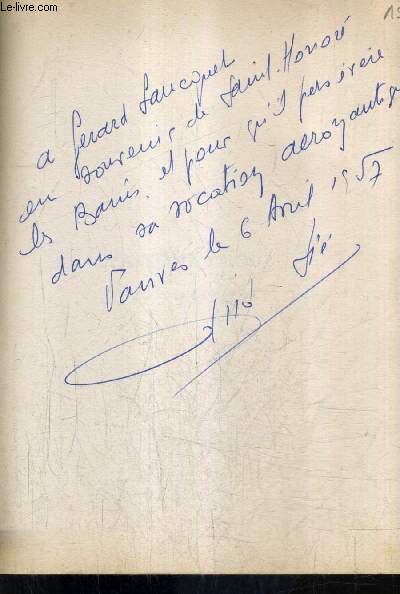 © Le-livre.com
a Gerard
en souvenir de Saint-Honoré
les Bains et pour qu'il persévère
dans sa vocation
Vanves le 6 Avril 1957